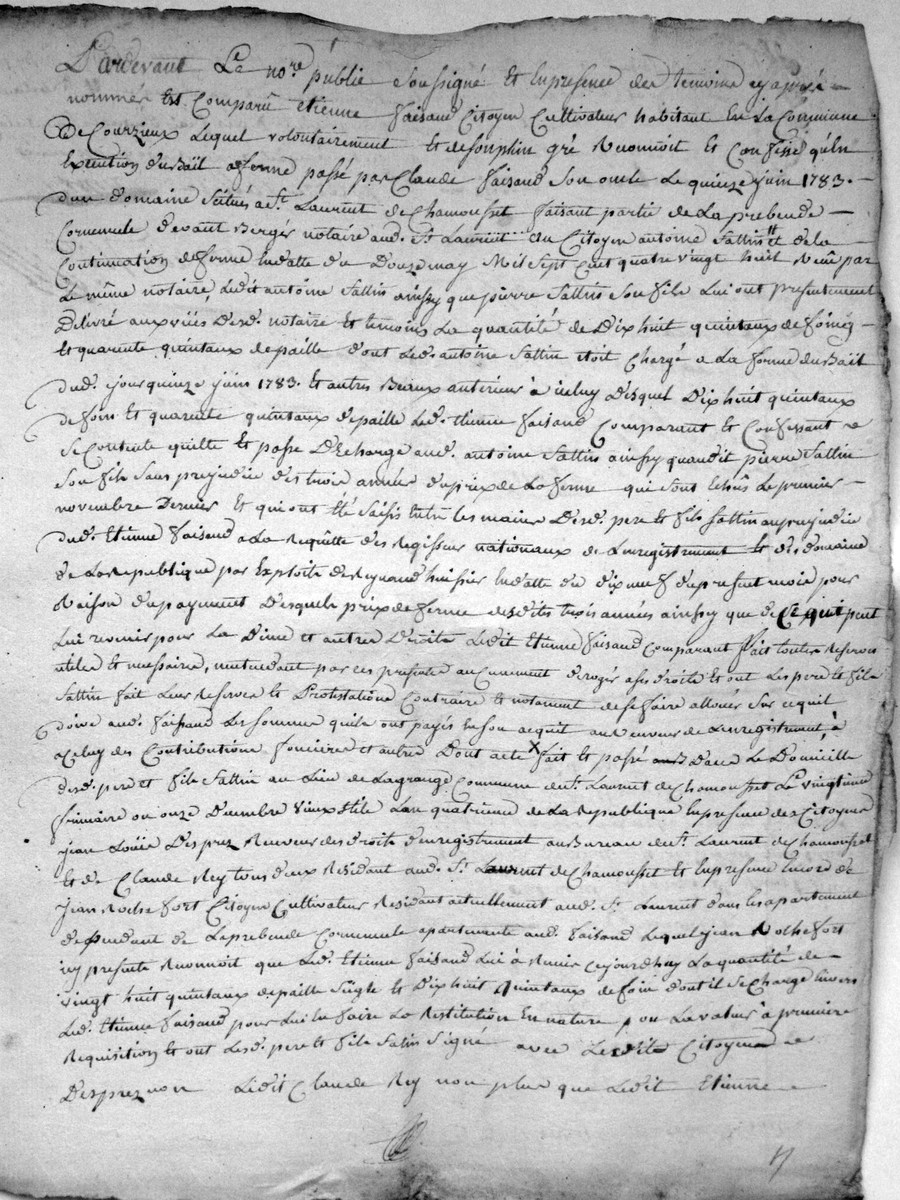 Pardevant Le no.re publie Soussigné Et En presence des temoins cy apres
nommés Est Comparû etienne faisand Citoyen Cultivateur habitant En La Commune
De Courzieux Lequel volontairement Et de son plin gré Reconnoit Et Confesse qu'En
Execution du Bail a ferme passé par Claude faisand Son oncle Le quinze juin 1783.
du domaine Situés a St. Laurent de Chamousset faisant partie de La prebende
Cornemule devant Berger notaire aud. St Laurent au Citoyen antoine Sattin Et de la
Continuation de ferme En datte du Douze may Mil Sept Cent quatre vingt huit Reçu par
Le même notaire, Ledit antoine Sattin ainssy que pierre Sattin Son fils Lui ont presentement
Delivré aux vües desd. notaire Et temoins La quantité de Dix huit quintaux de foing
Et quarente quintaux de paille dont Led. antoine Sattin etoit Chargé a La forme du Bail
dud. jour quinze juin 1783. Et autres Beaux anterieur à iceluy Desquel Dix huit quintaux
de foin Et quarente quintaux de paille Led. Etienne faisand Comparant Et Confessant
Se Contente quitte Et passe Decharge aud. antoine Sattin ainssy quaudit pierre Sattin
Son fils Sans prejudice des trois années du prix de La ferme qui Sont Echûs Le premier
novembre Dernier Et qui ont Eté Saisis Entre les mains Desd. pere Et fils Sattin au prejudice
dud. Etienne faisand a La Requêtte des Regisseur nationaux de L'enregistrement Et des domaine
de La Republique par Exploit de Reynaud huissier En datte du dix neuf du present mois pour
Raison du payment Desquels prix de ferme desdites trois années ainssy que de Ce qui peut
Lui revenir pour La Dime Et autres Droits Ledit Etienne faisand Comparant fait toutes Reserves
utiles Et necessaire, n'entendant par ces presente aucunement deroger a ses droits Et ont Les pere Et fils
Sattin fait Leur Reserves Et Protestations Contraire Et notament de Se faire allouer Sur ce quil
doive aud. faisand Les Somme quils ont payés En Son acquit au Receveur de L'enregistrement, à
Celuy des Contributions foncieres et autres Dont acte X fait Et passé Dans Le Domicille
desd. pere et fils Sattin au Lieu de Lagrange Commune de St. Laurent de Chamousset Le vingtieme
frimaire ou onze Decembre vieux Stile Lan quatrieme de La Republique En presence des Citoyens
jean Loüis Desprez Receveur des droits d'enregistrement au Bureau de St. Laurent de Chamousset
Et de Claude Rey tous deux Residant aud. St. Laurent de Chamousset Et En presence Encore de
Jean Rochefort Citoyen Cultivateur Residant actuellement aud. St. Laurent dans les apartement
dependant de La prebende Cornemule apartenante aud. faisand Lequel jean Rochefort
icy present Reconnoit que Led. Etienne faisand Lui à Remis Cejourdhuy La quantité de
vingt huit quintaux de paille Seigle Et Dix huit quintaux de foin dont il Se Charge Envers
Led. Etienne faisand pour Lui En faire La Restitution En nature, ou La valeur à premiere
Requisition Et ont Lesd. pere Et fils Sattin Signé avec Lesdits Citoyens
Desprez non Ledit Claude Rey non plus que Ledit Etienne